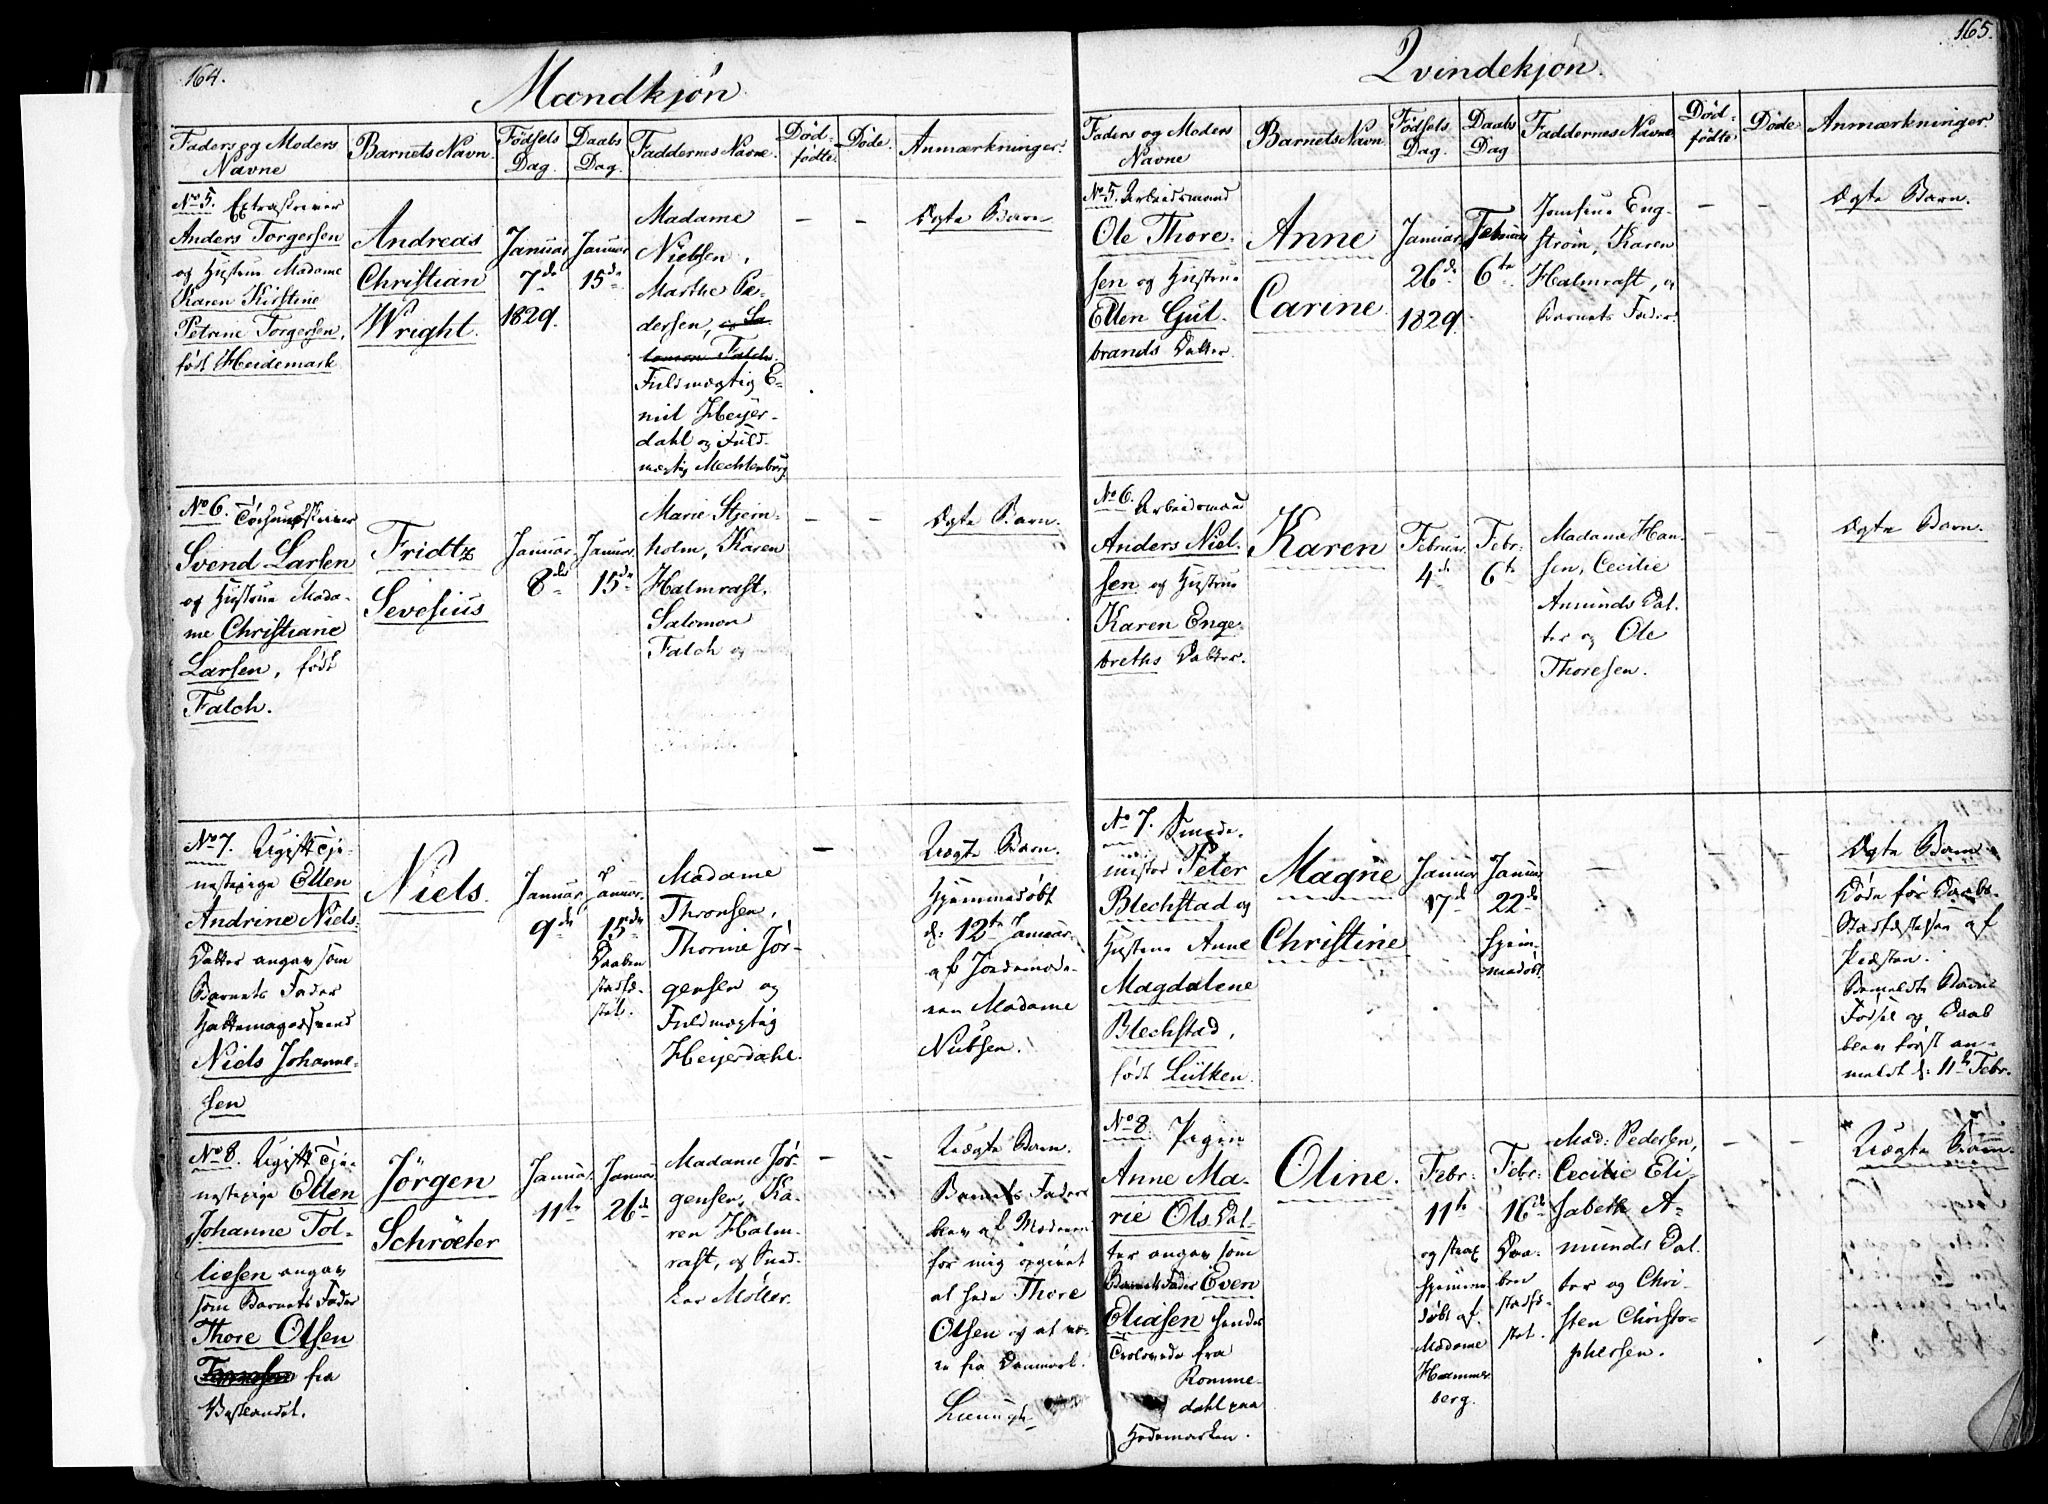 164.
Mandkjön.
Faders og Moders
Navne
Barnets Navn.
Födsels
Dag.
Daabs
Dag.
Faddernes Navne.
Död-
födte.
Döde.
Anmærkninger.
No 5. Extraskriver
Anders Torgersen
og Hustrue Madame
Karen Kirstine
Petrane Torgersen,
född Heidemark
Andreas
Christian
Wright.
Januar
7de
1829.
Januar
15de
Madame
Nielsen,
Marthe Pe-
dersen, og Sa-
lomon Falch.
Fuldmægtig E-
mil Heyer-
dahl og Fuld-
mægtig Mechlenburg
— —
Ægte Barn
No 6.
Svend Larsen
og Hustrue Mada-
me Christiane
Larsen, födt
Falch.
Fridtz
Sevesius
Januar
8de
Januar
15de
Marie Stjern-
holm, Karen
Halmrast.
Salomon
Falch og
— —
Ægte Barn.
No 7. Ugift Tje-
nestepige Ellen
Andrine Niels-
Datter angav som
Barnets Fader
Hattemagersvend
Niels Johanne-
sen
Niels.
Januar
9de
Januar.
15de
Daaben
stadfæ-
stet.
Madame
Thronsen,
Thorine Jör-
gensen og
Fuldmægtig
Heijerdahl.
—
Uægte Barn.
Hjemmedöbt
d: 12te Januar
af Jordemode-
ren Madame
Nielsen.
No 8. Ugift Tje-
nestepige Ellen
Johanne Tol-
liesen angav
som Barnets Fader
Thore Olsen
fra
Vestlandet.
Jörgen
Schröeter
Januar
11te
Januar
26de
Madame Jör-
gensen, Ka-
ren Halm-
rast, og Sned-
ker Möller.
— —
Uægte Barn.
Barnets Fader
blev af Moderen
for mig opgivet
at hede Thore
Olsen og at væ-
re fra Danmark.
165.
Qvindekjön.
Faders og Moders
Navne
Barnets Navn
Födsels
Dag.
Daabs
Dag
Faddernes Navne
Död-
födte.
Döde
Anmærkninger.
No 5. Arbeidsmand
Ole Thore-
sen og Hustrue
Ellen Gul-
brands Datter.
Anne
Carine
Januar
26de
1829.
Februar
6te
Jomfrue Eng-
ström, Karen
Halmrast, og
Barnets Fader.
— —
Ægte Barn.
No 6. Arbeidsmand
Anders Niel-
sen og Hustrue
Karen Enge-
breths Datter.
Karen
Februar
4de
Febr:
6te
Madame Han-
sen, Cecilie
Amunds Dat-
ter og Ole
Thoresen.
— —
Ægte Barn.
No 7. Smede-
mester Peter
Blechstad og
Hustrue Anne
Magdalene
Blechstad,
födt Lütken.
Magne
Christine
Januar
17de
Januar
22de
hjem-
medöbt.
— —
Ægte Barn
Döde för Daabs-
Stadfæstelsen af
Præsten.
Bemeldte Barns
Födsel og Daab
blev först an-
meldt d: 11te Febr.
No 8. Pigen
Anne Ma-
rie Ols Dat-
ter angav som
Barnets Fader Even
Eliasen
fra
Romme-
dahl paa
Hedemarken.
Oline.
Febr:
11te
og strax
hjemme-
döbt af
Madame
Hammer-
berg.
Febr:
16de
Daa-
ben
stadfæ-
stet.
Mad: Pedersen,
Cecilie Eli-
sabeth A-
munds Dat-
ter og Chri-
sten Christo-
phersen.
— —
Uægte Barn.